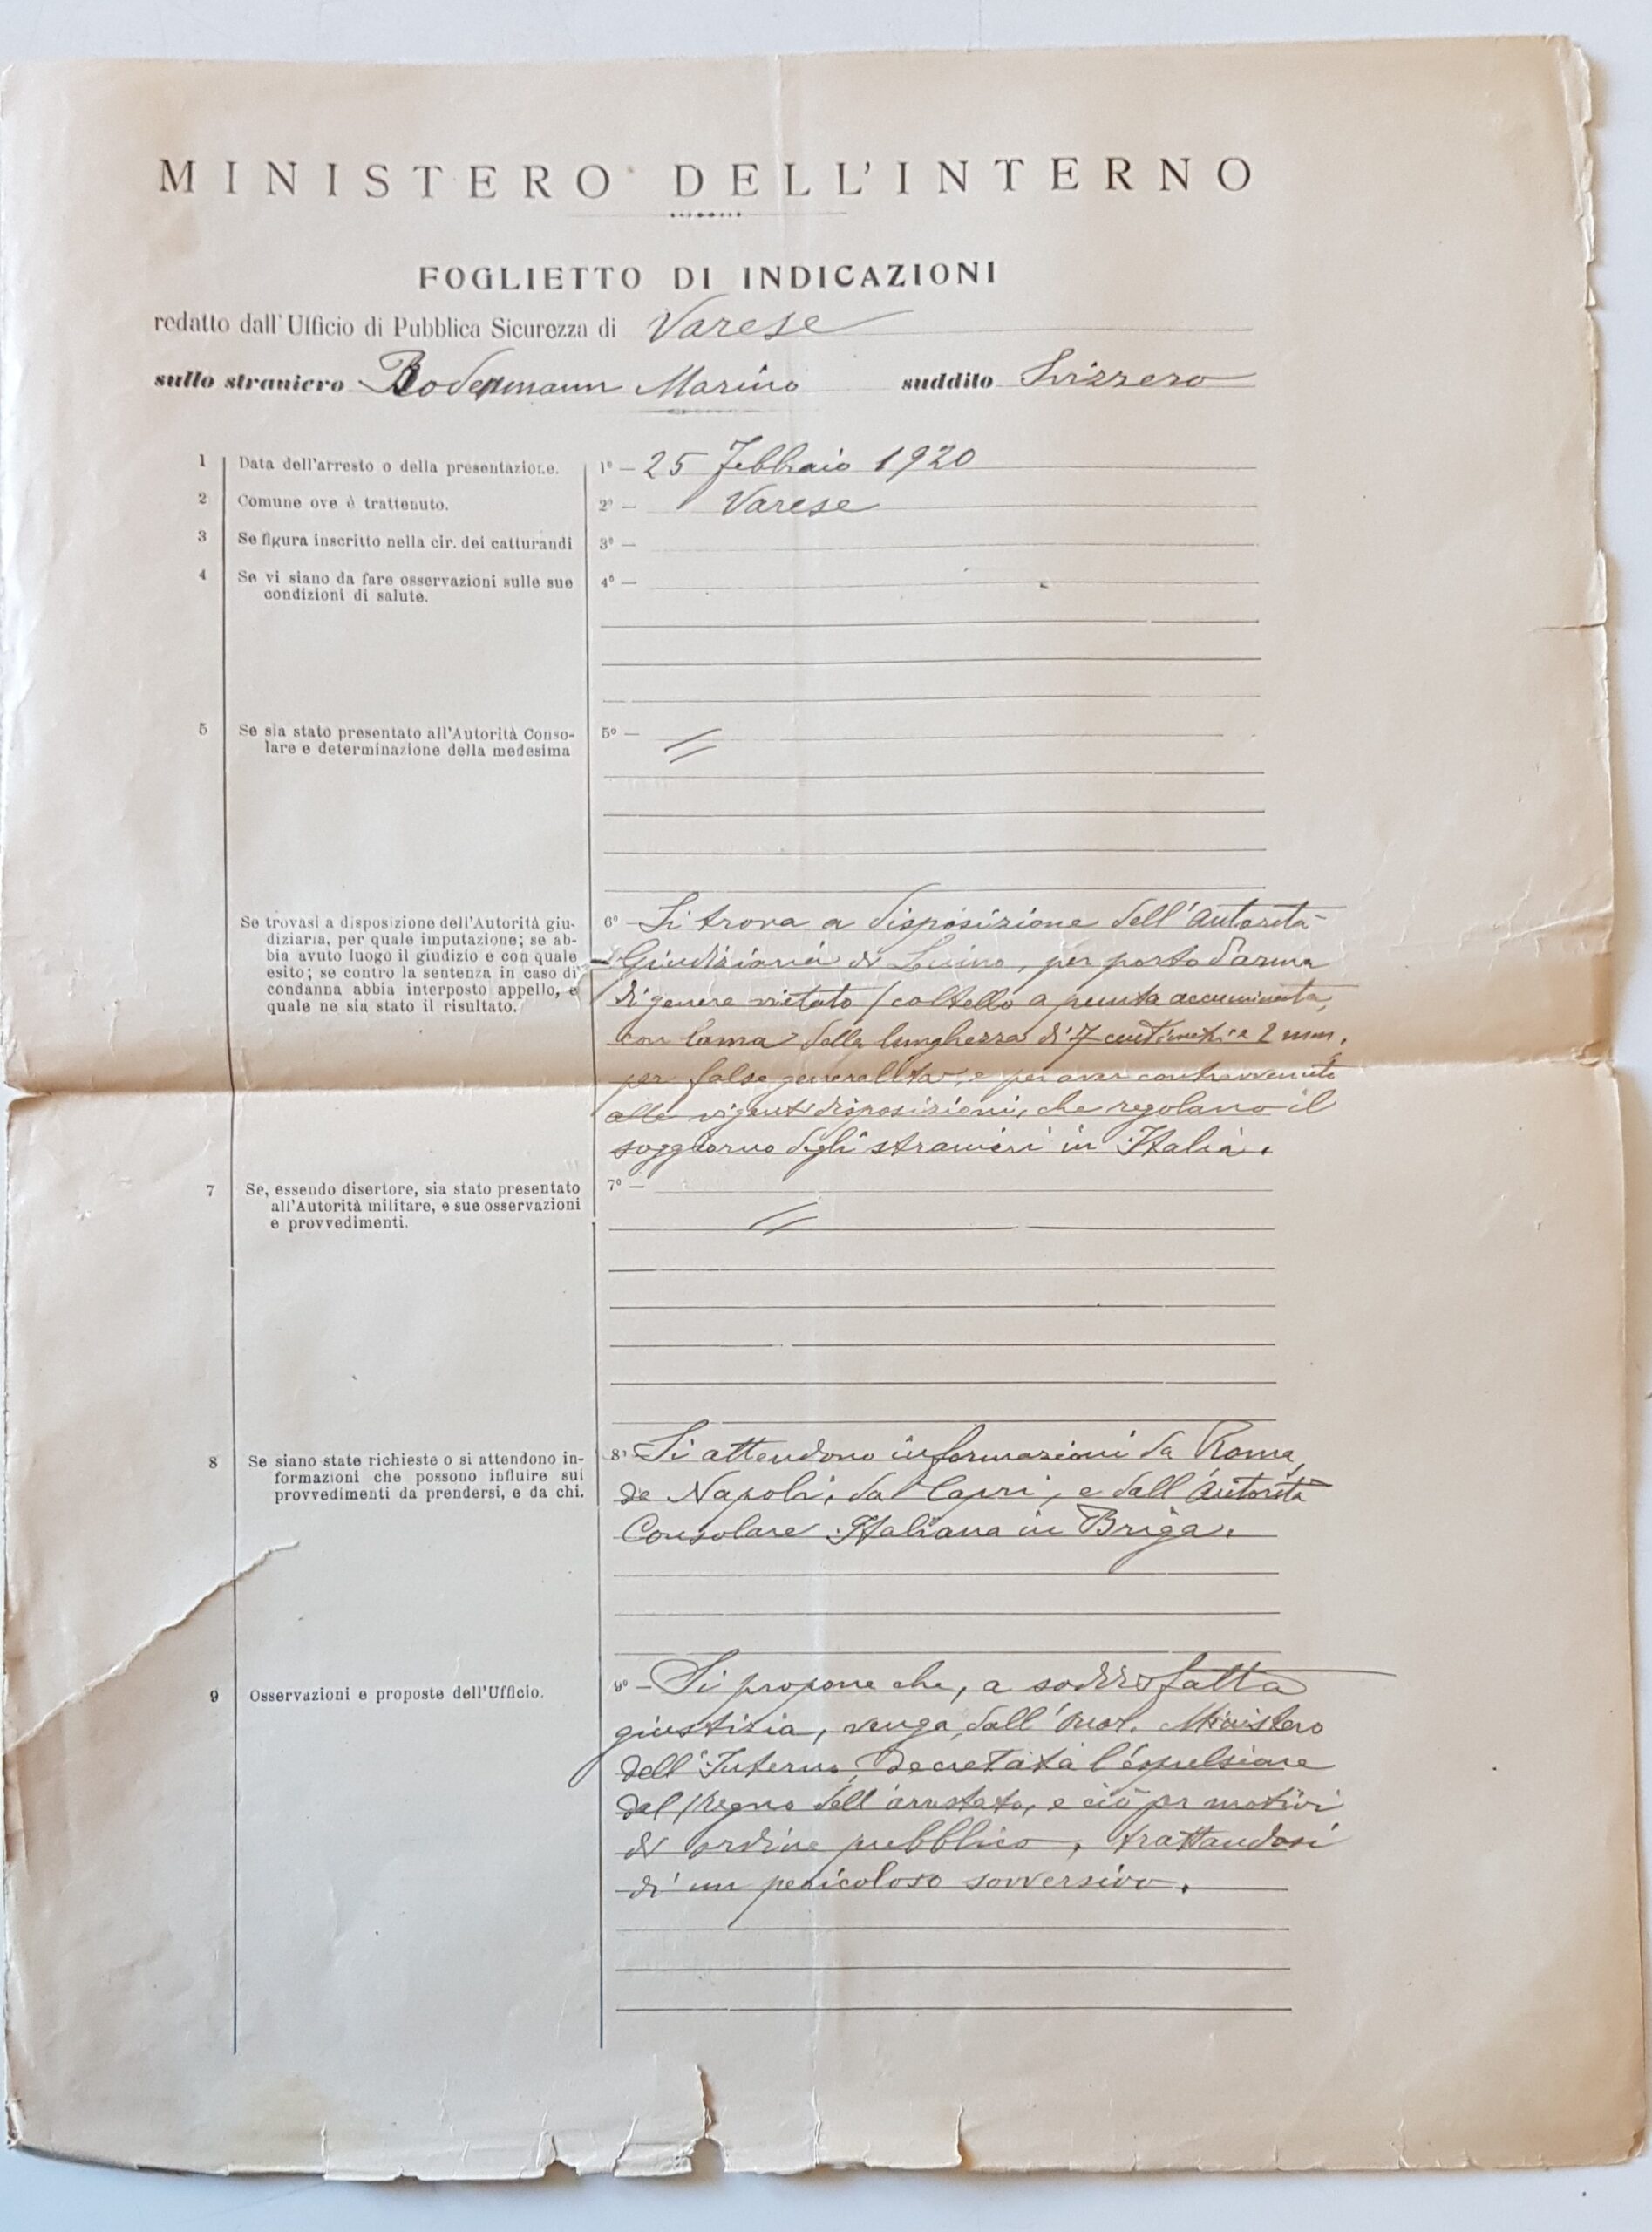 MINISTERO DELL'INTERNO
FOGLIETTO DI INDICAZIONI
redatto dall'Ufficio di Pubblica Sicurezza di Varese
sullo straniero Bodenmann Marino suddito Svizzero
1 Data dell'arresto o della presentazione. 1º — 25 Febbraio 1920
2 Comune ove è trattenuto. 2º — Varese
3 Se figura inscritto nella cir. dei catturandi 3º —
4 Se vi siano da fare osservazioni sulle sue 4º —
condizioni di salute.
5 Se sia stato presentato all'Autorità Conso- 5º — //
lare e determinazione della medesima
Se trovasi a disposizione dell'Autorità giu-
diziaria, per quale imputazione; se ab-
bia avuto luogo il giudizio e con quale
esito; se contro la sentenza in caso di
condanna abbia interposto appello, e
quale ne sia stato il risultato.
6º — Si trova a disposizione dell'Autorità
Giudiziaria di Luino, per porto d'arma
di genere vietato (coltello a punta accuminata,
con lama della lunghezza di 7 centimetri e 2 mm,
per false generalità, e per aver contravvenuto
alle vigenti disposizioni, che regolano il
soggiorno degli stranieri in Italia.
7 Se, essendo disertore, sia stato presentato 7º —
all'Autorità militare, e sue osservazioni
e provvedimenti. //
8 Se siano state richieste o si attendono in-
formazioni che possono influire sui
provvedimenti da prendersi, e da chi.
8º Si attendono informazioni da Roma,
da Napoli, da Capri, e dall'Autorità
Consolare Italiana in Briga.
9 Osservazioni e proposte dell'Ufficio.
9º — Si propone che, a soddisfatta
giustizia, venga dall'Onor. Ministero
dell'Interno, decretata l'espulsione
dal Regno dell'arrestato, e ciò per motivi
di ordine pubblico, trattandosi
di un pericoloso sovversivo.